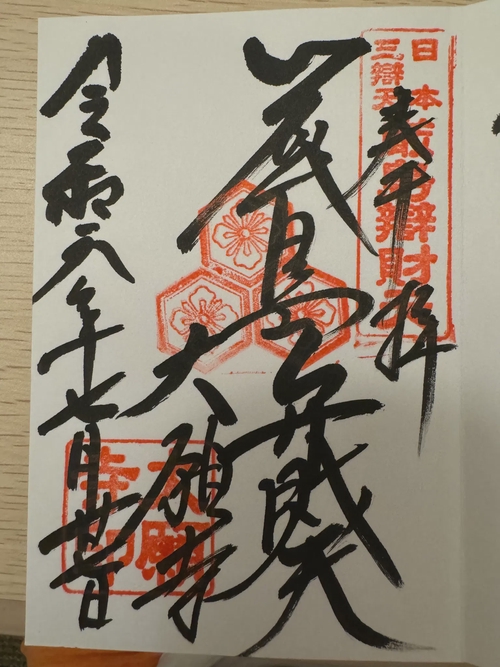 日本
三辯天
嚴島辯財天
奉拝
厳島弁財天
大願寺
大願
寺印
令和年七月廿日